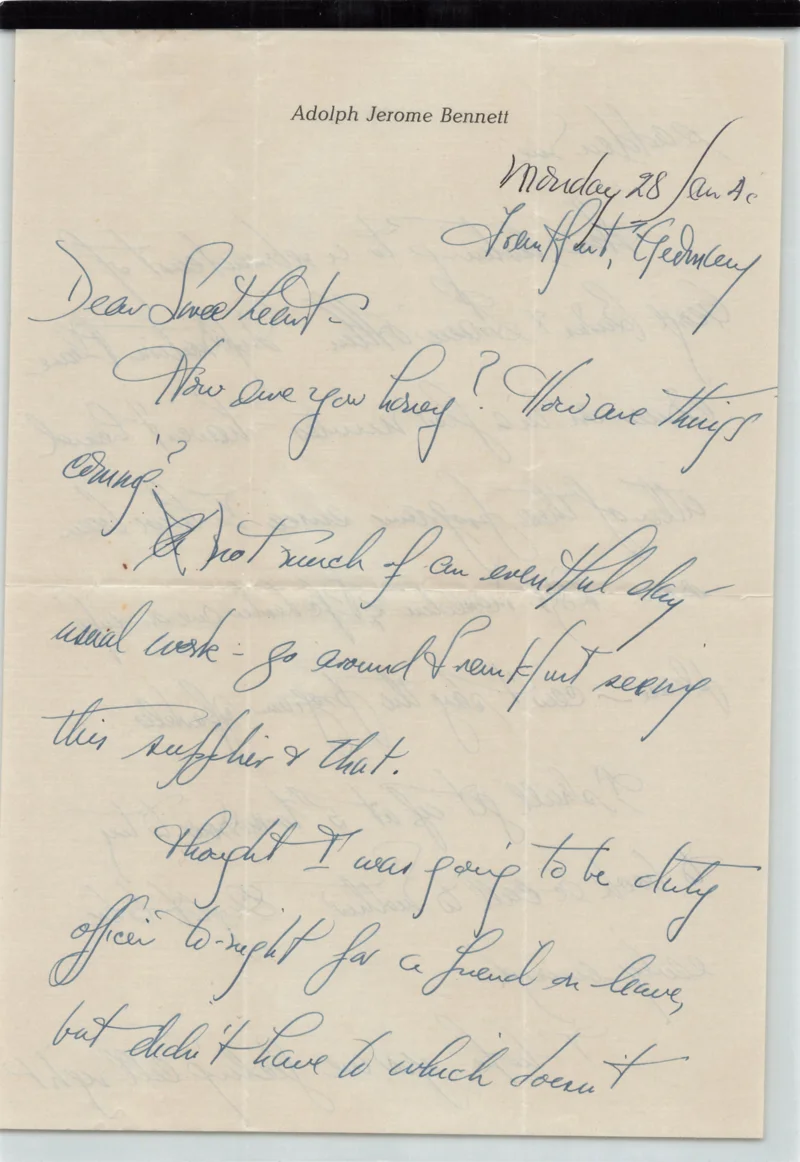 Adolph Jerome Bennett
Monday 28 Jan 4
Frankfurt, Germany
Dear Sweetheart-
How are you honey? How are things
coming?
not much of an eventful day-
usual work - go around Frankfurt seeing
this supplier & that.
Thought I was going to be duty
officer to-night for a friend on leave,
but didn't have to which doesn't